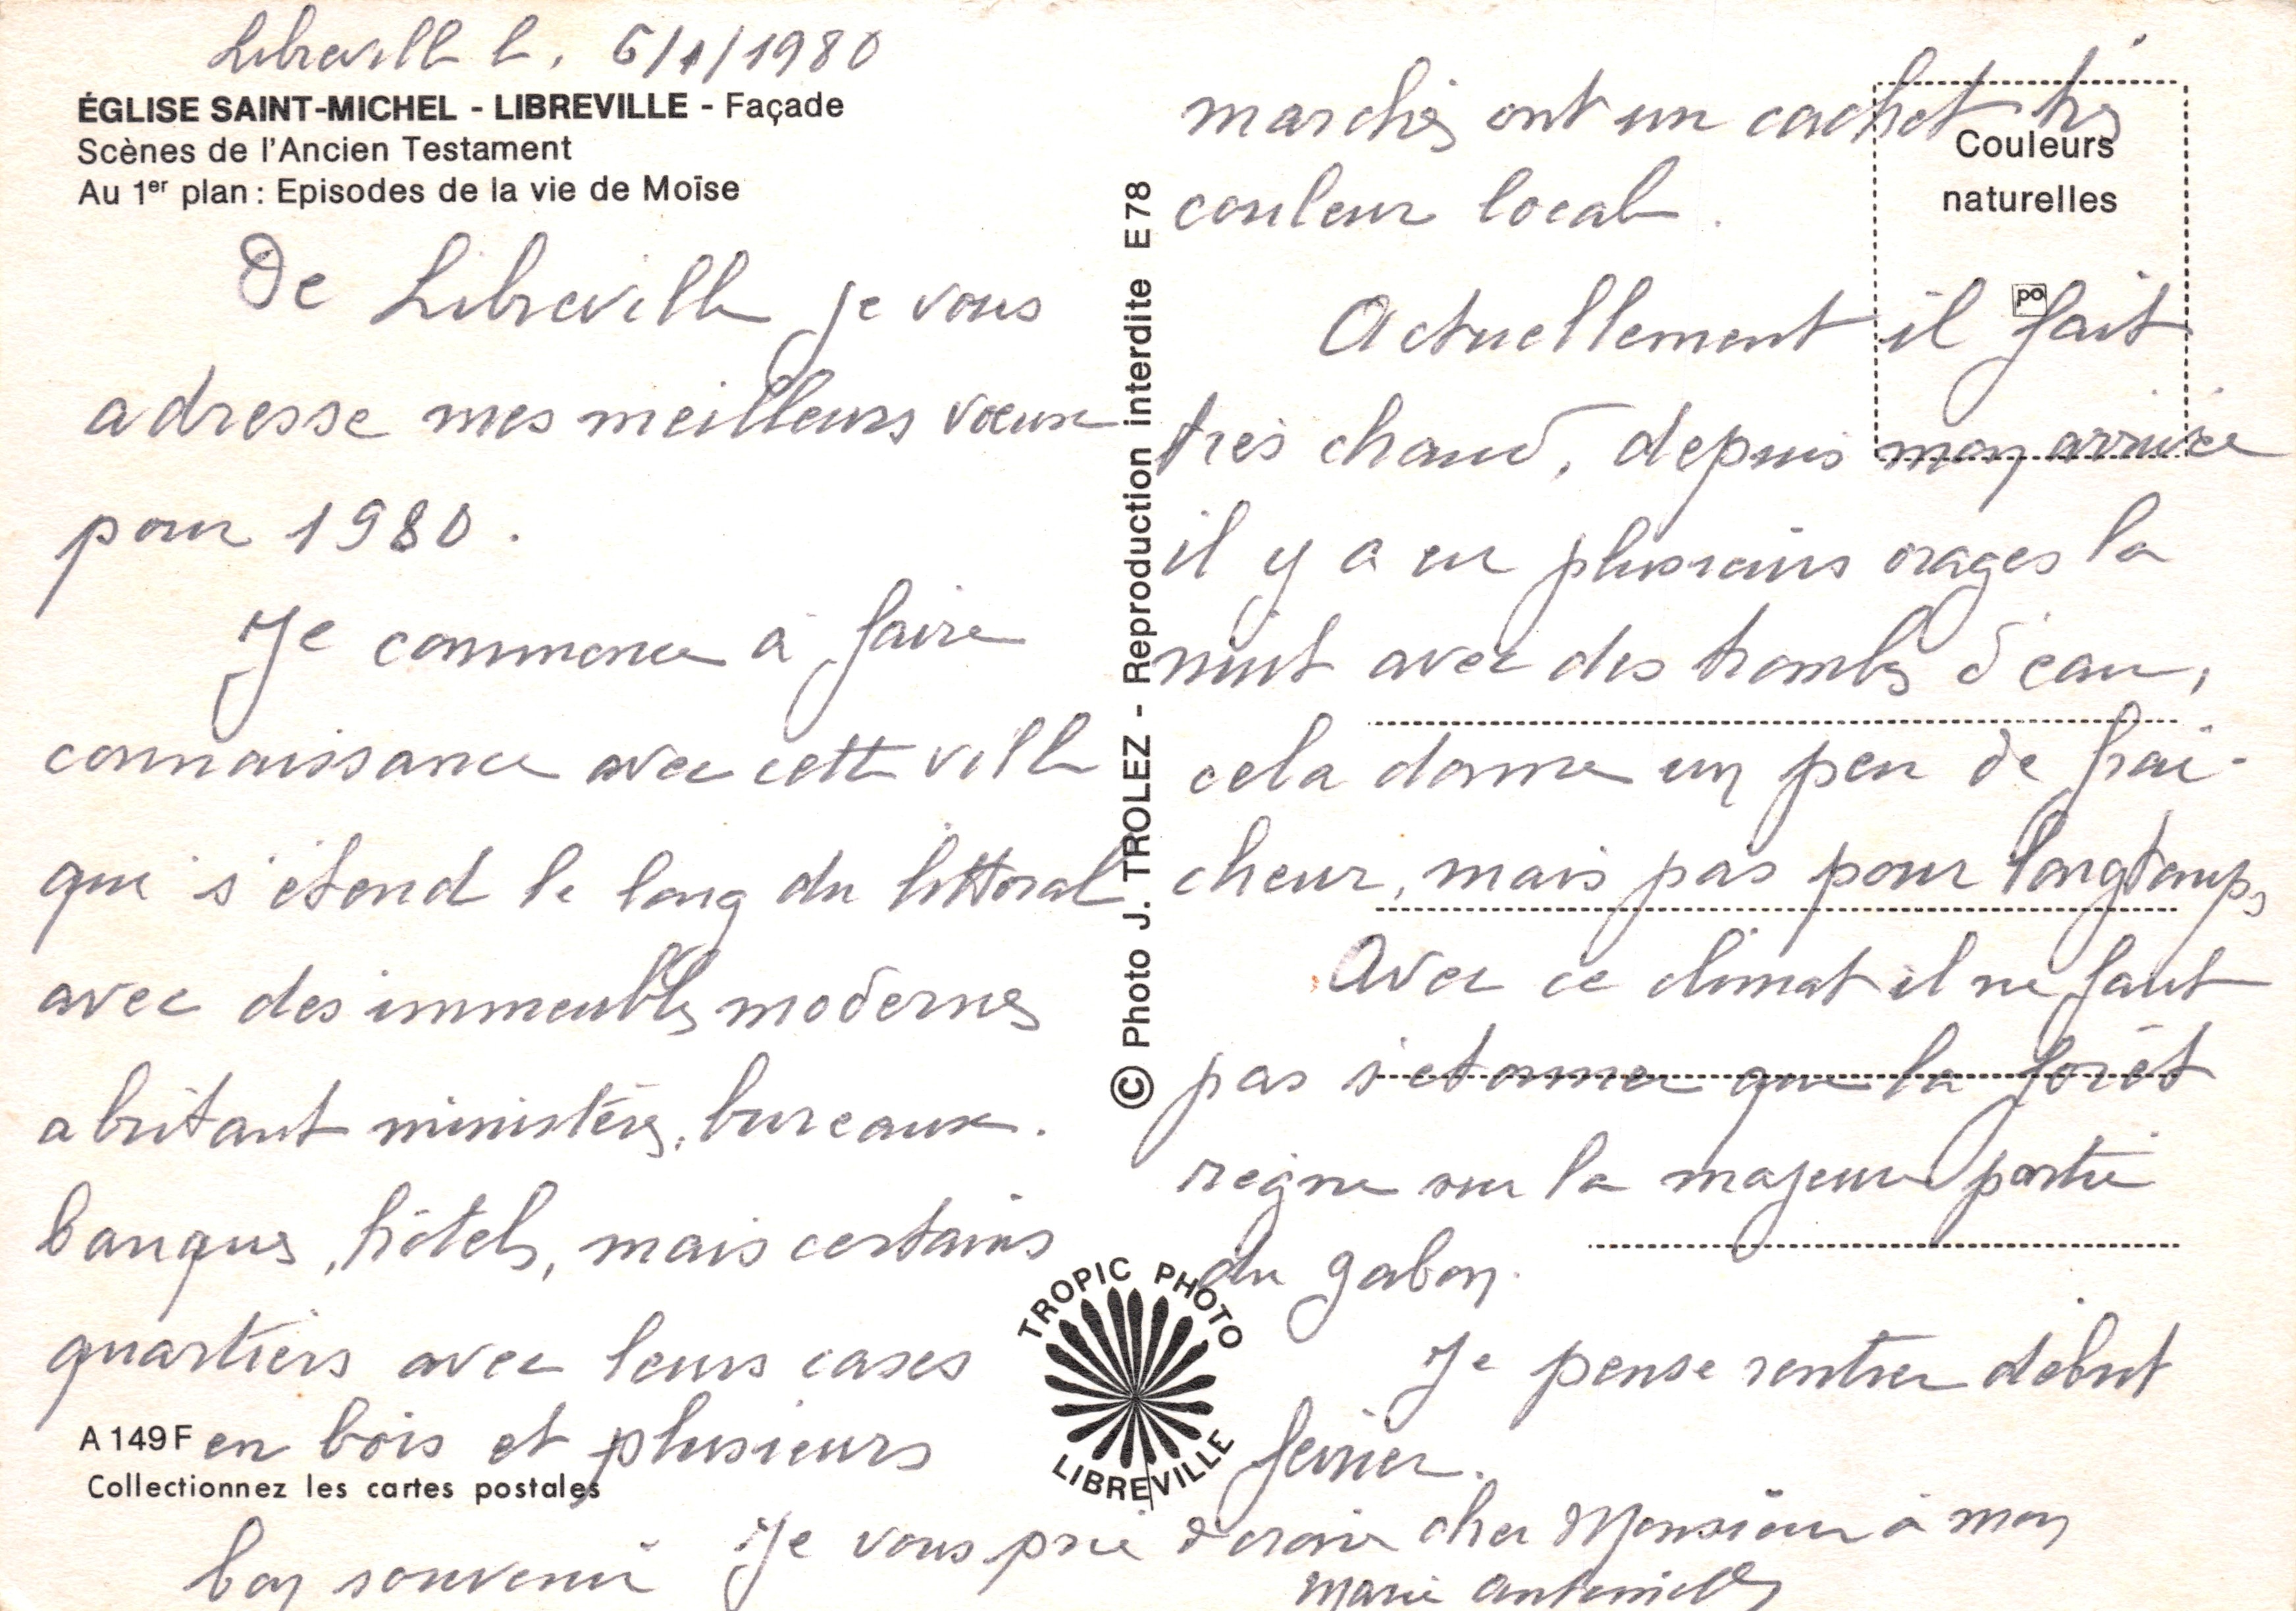 Libreville le, 6/1/1980
ÉGLISE SAINT-MICHEL - LIBREVILLE - Façade
Scènes de l'Ancien Testament
Au 1er plan : Episodes de la vie de Moïse
De Libreville je vous
adresse mes meilleurs vœux
pour 1980.
Je commence à faire
connaissance avec cette ville
qui s'étend le long du littoral
avec des immeubles modernes
abritant ministères, bureaux.
banques, hôtels, mais certains
quartiers avec leurs cases
A 149 F
en bois et plusieurs
Collectionnez les cartes postales
© Photo J. TROLEZ - Reproduction interdite E 78
TROPIC PHOTO
LIBREVILLE
Couleurs
naturelles
po
marchés ont un cachet très
couleur locale.
Actuellement il fait
très chaud, depuis mon arrivée
il y a eu plusieurs orages la
nuit avec des trombes d'eau,
cela donne un peu de fraî-
cheur, mais pas pour longtemps
Avec ce climat il ne faut
pas s'étonner que la forêt
règne sur la majeure partie
du gabon.
Je pense rentrer début
février.
Je vous prie d'croire cher Monsieur à mon
bon souvenir
Marie Antoinette